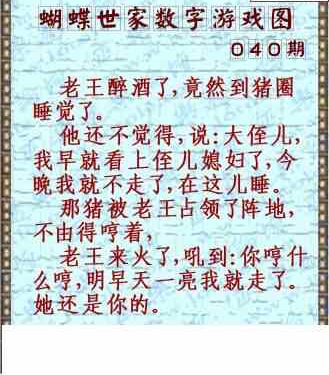 蝴蝶世家数字游戏图
040期
老王醉酒了,竟然到猪圈
睡觉了。
他还不觉得,说:大侄儿,
我早就看上侄儿媳妇了,今
晚我就不走了,在这儿睡。
那猪被老王占领了阵地,
不由得哼着,
老王来火了,吼到:你哼什
么哼,明早天一亮我就走了。
她还是你的。